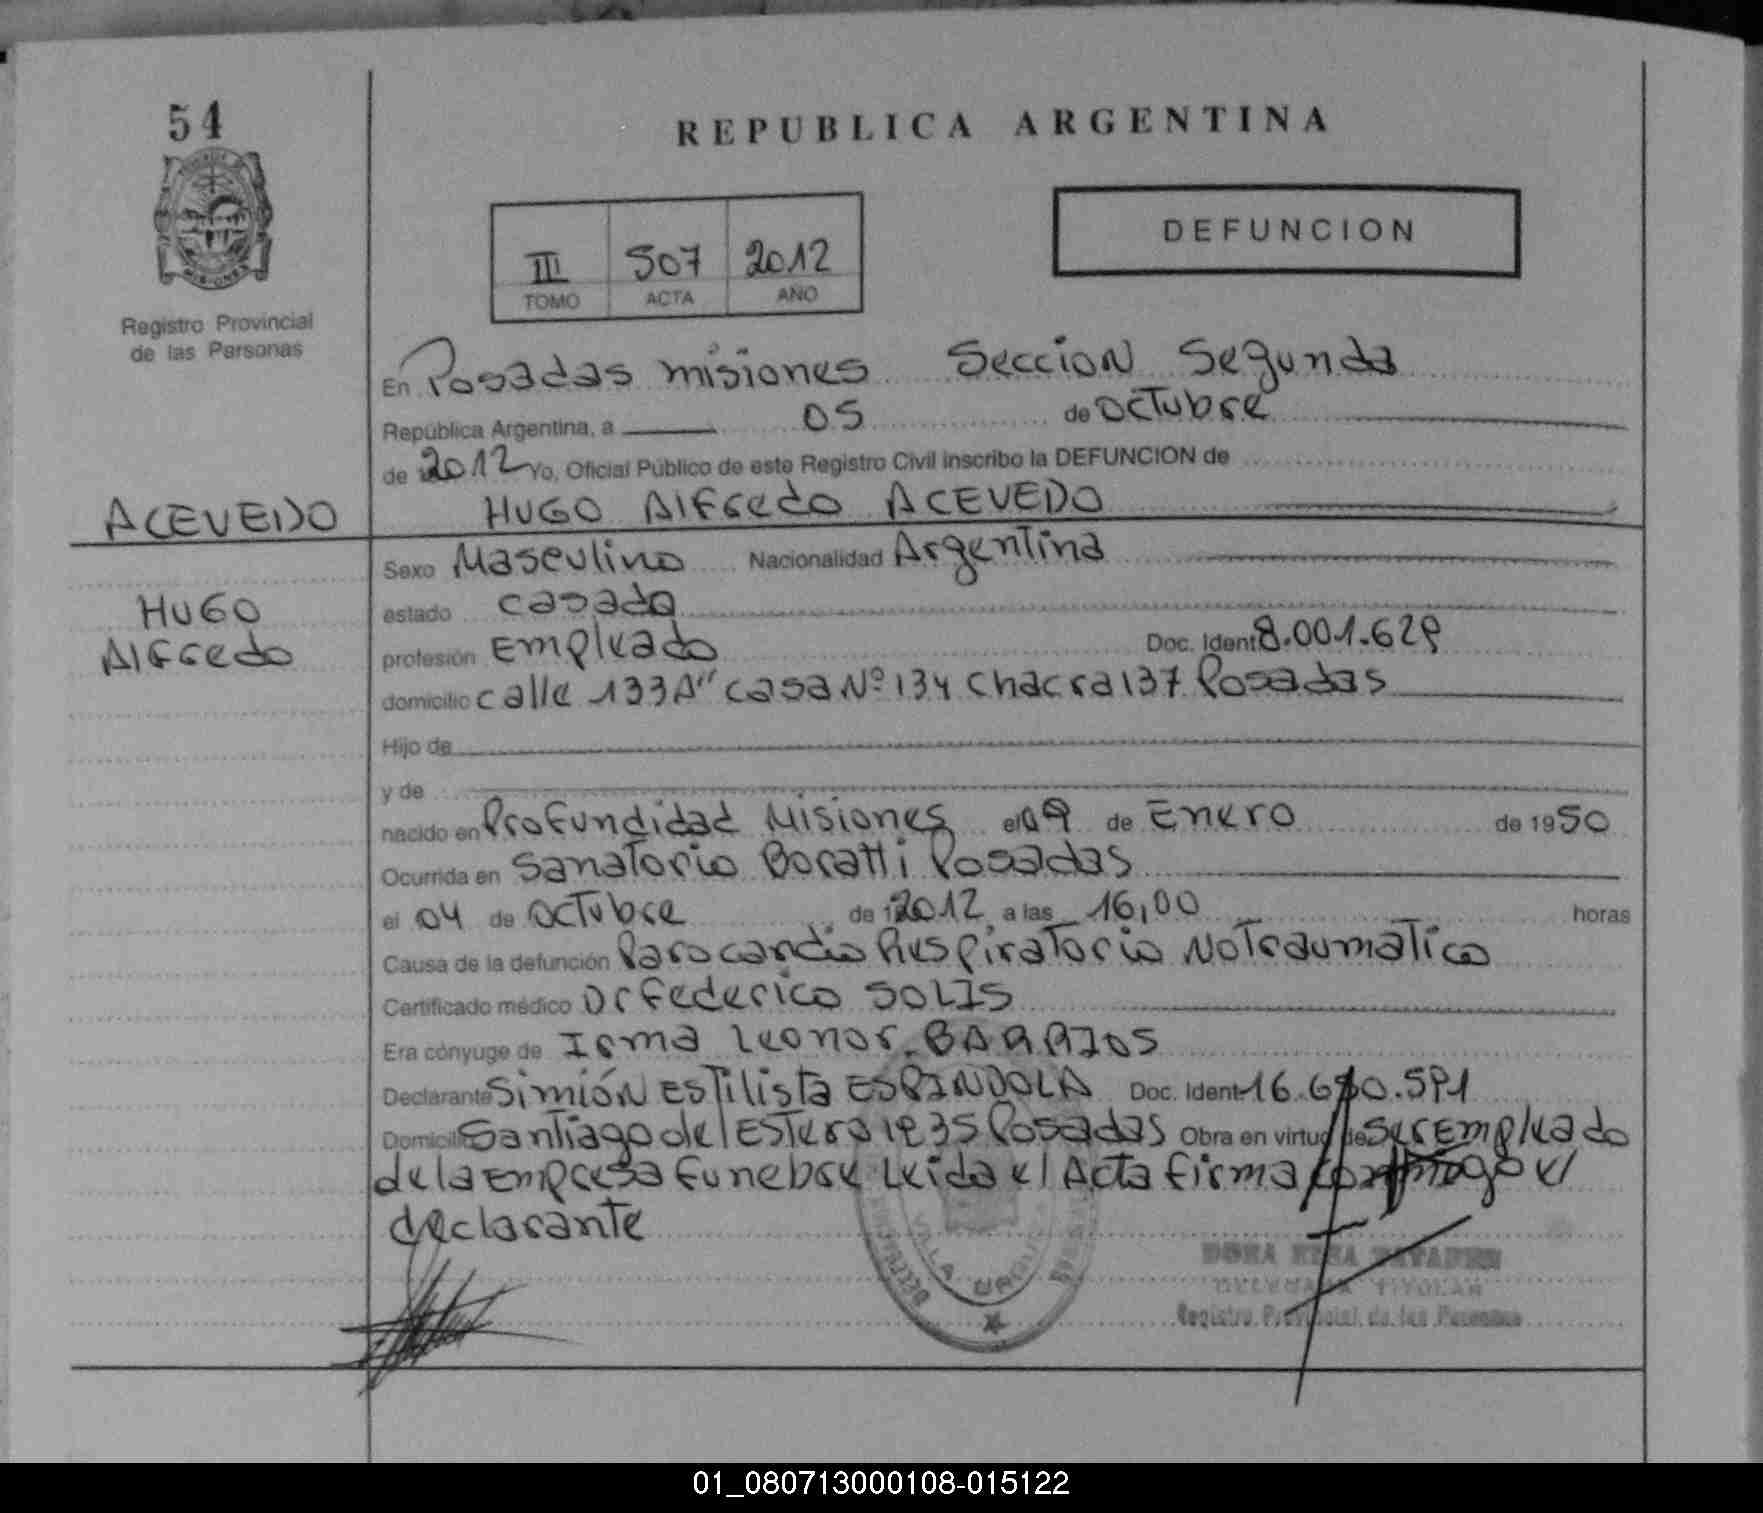 54
REPUBLICA ARGENTINA
MISIONES
Registro Provincial
de las Personas
III 507 2012
TOMO ACTA AÑO
DEFUNCION
En Posadas misiones Seccion Segunda
República Argentina, a 05 de octubre
de 2012 Yo, Oficial Público de este Registro Civil inscribo la DEFUNCION de
ACEVEDO
HUGO Alfredo ACEVEDO
Sexo Masculino Nacionalidad Argentina
HUGO
Alfredo
estado casado
profesión Empleado Doc. Ident 8.001.629
domicilio calle 133A" casa Nº 134 chacra 137 Posadas
Hijo de
y de
nacido en Profundidad Misiones el 09 de Enero de 1950
Ocurrida en Sanatorio Boratti Posadas
el 04 de octubre de 2012 a las 16,00 horas
Causa de la defunción Paro cardio Respiratorio No Traumatico
Certificado médico Dr Federico SOLIS
Era cónyuge de Irma Leonor BARRIOS
Declarante Simión Estilista ESPINDOLA Doc. Ident 16.680.591
Domicilio Santiago del Estero 1835 Posadas Obra en virtud de ser Empleado
de la Empresa funebre Leida el Acta firma conmigo el
declarante
VILLA
DELEGADA TITULAR
Registro Provincial de las Personas
01_080713000108-015122